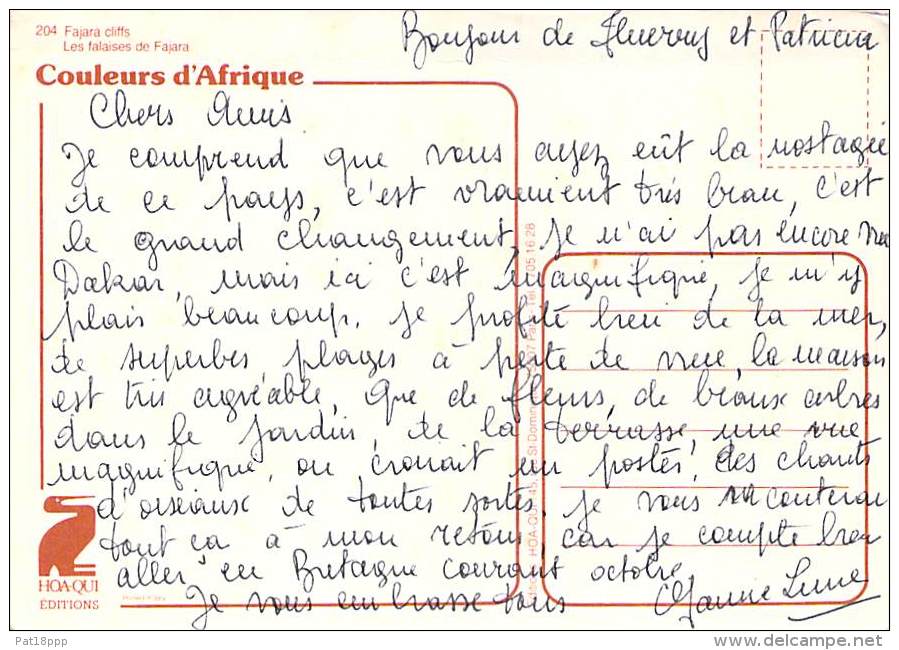 204 Fajara cliffs
Les falaises de Fajara
Couleurs d'Afrique
Bonjour de Thierry et Patricia
Chers Amis
Je comprend que vous ayez eût la nostagie
de ce pays, c'est vraiment très beau, c'est
le grand changement, je n'ai pas encore vu
Dakar, mais ici c'est magnifique, je m'y
plais beaucoup. je profite bien de la mer,
de superbes plages à perte de vue, la maison
est très agréable, que de fleurs, de beaux arbres
dans le jardin, de la terrasse, une vue
magnifique, on croirait un postés, des chants
d'oiseaux de toutes sortes, je vous raconterai
tout ça à mon retour, car je compte bien
aller en Bretagne courant octobre
Je vous embrasse tous
HOA-QUI
ÉDITIONS
HOA-QUI 145, St Domin 05 16 28
Pat18ppp
www.delcampe.net